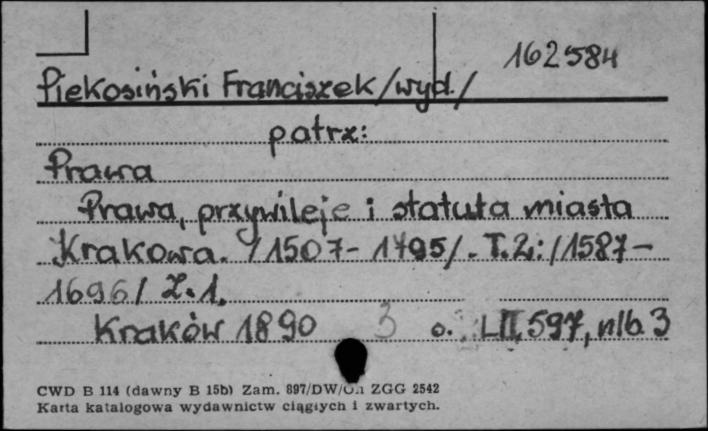 162584
Piekosiński Franciszek /wyd./
patrz:
Prawa
Prawa, przywileje i statuta miasta
Krakowa. /1507-1795/. T.2: /1587-
1696/ Z.1.
Kraków 1890 3 o. LII, 597, nlb. 3
CWD B 114 (dawny B 15b) Zam. 897/DW/ ZGG 2542
Karta katalogowa wydawnictw ciągłych i zwartych.